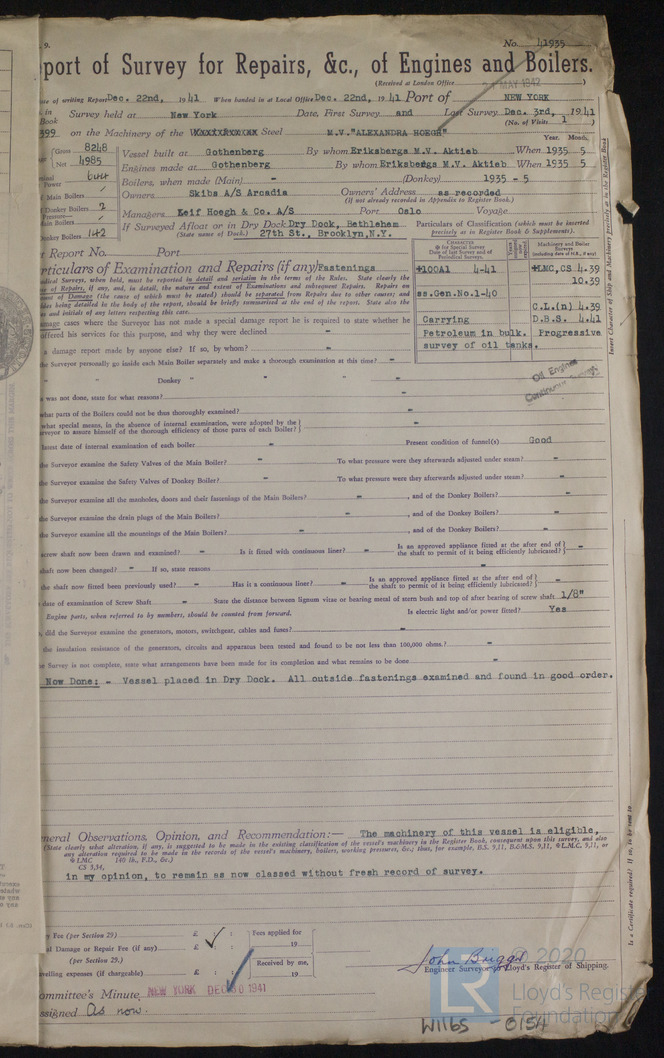 . 9.
No. 41935
port of Survey for Repairs, &c., of Engines and Boilers.
(Received at London Office MAY 1942 )
of writing Report Dec. 22nd, 1941 When handed in at Local Office Dec. 22nd, 1941 Port of NEW YORK
in Survey held at New York Date, First Survey and Last Survey Dec. 3rd, 1941
Book (No. of Visits 1 )
399 on the Machinery of the Steel M.V."ALEXANDRA HOEGH"
Year. Month.
Gross 8248 Vessel built at Gothenberg By whom Eriksbergs M.V. Aktieb When 1935 5
Net 4985 Engines made at Gothenberg By whom Eriksbergs M.V. Aktieb When 1935 5
Power 644 Boilers, when made (Main) - (Donkey) 1935 - 5
Main Boilers Owners Skibs A/S Arcadia Owners' Address as recorded
(if not already recorded in Appendix to Register Book.)
Donkey Boilers 2 Managers Leif Hoegh & Co. A/S Port Oslo Voyage
Main Boilers If Surveyed Afloat or in Dry Dock Dry Dock, Bethlehem
Donkey Boilers 142 (State name of Dock.) 27th St., Brooklyn, N.Y.
Particulars of Classification (which must be inserted
precisely as in Register Book & Supplements).
Report No. Port
CHARACTER
for Special Survey
Date of last Survey and of
Periodical Surveys.
Machinery and Boiler
Surveys
(including date of N.B., if any)
+100A1 4-41 +LMC,CS 4.39
10.39
ss.Gen.No.1-40
C.L.(n) 4.39
Carrying D.B.S. 4.41
Petroleum in bulk. Progressive
survey of oil tanks.
rticulars of Examination and Repairs (if any) Fastenings
dical Surveys, when held, must be reported in detail and seriatim in the terms of the Rules. State clearly the
of Repairs, if any, and, in detail, the nature and extent of Examinations and subsequent Repairs. Repairs on
of Damage (the cause of which must be stated) should be separated from Repairs due to other causes; and
being detailed in the body of the report, should be briefly summarized at the end of the report. State also the
and initials of any letters respecting this case.
cases where the Surveyor has not made a special damage report he is required to state whether he
offered his services for this purpose, and why they were declined -
a damage report made by anyone else? If so, by whom? -
the Surveyor personally go inside each Main Boiler separately and make a thorough examination at this time? -
" " Donkey " " " -
Oil Engines
Continuous Survey
was not done, state for what reasons? -
what parts of the Boilers could not be thus thoroughly examined? -
what special means, in the absence of internal examination, were adopted by the
Surveyor to assure himself of the thorough efficiency of those parts of each Boiler? -
latest date of internal examination of each boiler - Present condition of funnel(s) Good
the Surveyor examine the Safety Valves of the Main Boiler? - To what pressure were they afterwards adjusted under steam? -
the Surveyor examine the Safety Valves of Donkey Boiler? - To what pressure were they afterwards adjusted under steam? -
the Surveyor examine all the manholes, doors and their fastenings of the Main Boilers? - , and of the Donkey Boilers? -
the Surveyor examine the drain plugs of the Main Boilers? - , and of the Donkey Boilers? -
the Surveyor examine all the mountings of the Main Boilers? - , and of the Donkey Boilers? -
screw shaft now been drawn and examined? - Is it fitted with continuous liner? - Is an approved appliance fitted at the after end of the shaft to permit of it being efficiently lubricated? -
shaft now been changed? - If so, state reasons -
the shaft now fitted been previously used? - Has it a continuous liner? - Is an approved appliance fitted at the after end of the shaft to permit of it being efficiently lubricated? -
date of examination of Screw Shaft - State the distance between lignum vitæ or bearing metal of stern bush and top of after bearing of screw shaft 1/8"
Engine parts, when referred to by numbers, should be counted from forward. Is electric light and/or power fitted? Yes
, did the Surveyor examine the generators, motors, switchgear, cables and fuses? -
the insulation resistance of the generators, circuits and apparatus been tested and found to be not less than 100,000 ohms? -
Survey is not complete, state what arrangements have been made for its completion and what remains to be done -
Now Done: - Vessel placed in Dry Dock. All outside fastenings examined and found in good order.
neral Observations, Opinion, and Recommendation:— The machinery of this vessel is eligible,
(State clearly what alteration, if any, is suggested to be made in the existing classification of the vessel's machinery in the Register Book, consequent upon this survey, and also
any alteration required to be made in the records of the vessel's machinery, boilers, working pressures, &c.; thus, for example, B.S. 9,11, B.&M.S. 9,11, LMC. 9,11, or
LMC 140 lb., F.D., &c.)
CS 3,34,
in my opinion, to remain as now classed without fresh record of survey.
Fee (per Section 29) £ : : Fees applied for
Damage or Repair Fee (if any) £ : : 19
(per Section 29.) Received by me,
velling expenses (if chargeable) £ : : 19
John Briggs
Engineer Surveyor to Lloyd's Register of Shipping.
ommittee's Minute NEW YORK DEC 30 1941
ssigned As now.
Insert Character of Ship and Machinery precisely as in the Register Book
Is a Certificate required? If so, to be sent to
© 2020
LR
Lloyd's Register
Foundation
W1165-0154